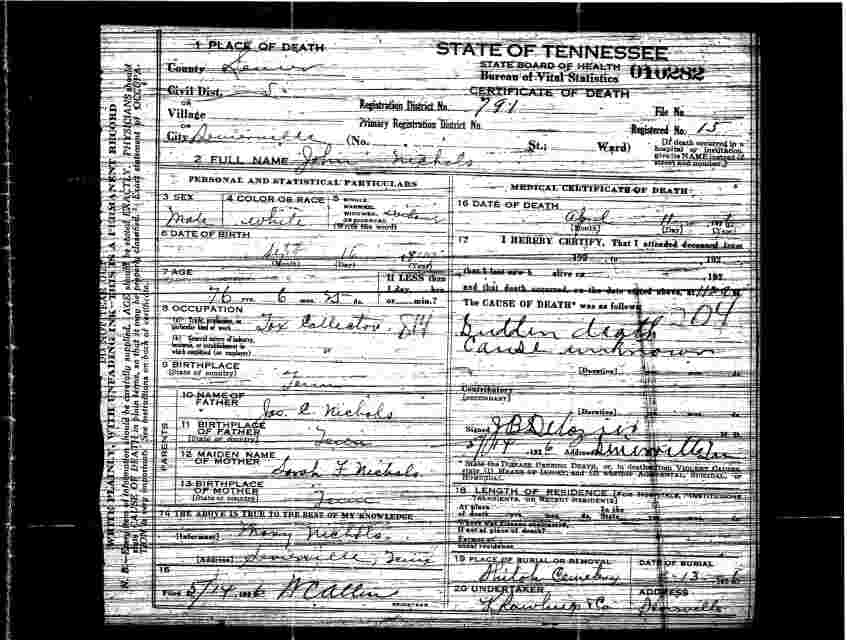 1 PLACE OF DEATH
County Sevier
Civil Dist. 5
OR
Village
OR
City Sevierville (No. St.; Ward)
STATE OF TENNESSEE
STATE BOARD OF HEALTH
Bureau of Vital Statistics
010282
CERTIFICATE OF DEATH
Registration District No. 791 File No
Primary Registration District No. Registered No. 15
(If death occurred in a
hospital or institution,
give its NAME instead of
street and number.)
2 FULL NAME John Nichols
PERSONAL AND STATISTICAL PARTICULARS
3 SEX
Male
4 COLOR OR RACE
white
5 SINGLE,
MARRIED,
WIDOWED,
OR DIVORCED
(Write the word)
6 DATE OF BIRTH
Sept 16
(Month) (Day) (Year)
7 AGE
76 yrs. 6 mos. 25 ds.
If LESS than
1 day, hrs
or min.?
8 OCCUPATION
(a) Trade, profession, or
particular kind of work Tax Collector 814
(b) General nature of industry,
business, or establishment in
which employed (or employer)
9 BIRTHPLACE
(State or country) Tenn
PARENTS
10 NAME OF
FATHER Jas. C. Nichols
11 BIRTHPLACE
OF FATHER
(State or country) Tenn
12 MAIDEN NAME
OF MOTHER Sarah F Nichols
13 BIRTHPLACE
OF MOTHER
(State or country) Tenn
14 THE ABOVE IS TRUE TO THE BEST OF MY KNOWLEDGE
(Informant) Mary Nichols
(Address) Sevierville, Tenn
15
Filed 5/14 1926 W Callin
REGISTRAR
MEDICAL CERTIFICATE OF DEATH
16 DATE OF DEATH
April
(Month) (Day) (Year)
17 I HEREBY CERTIFY, That I attended deceased from
192 to 192
that I last saw h alive on 192
and that death occurred, on the date stated above, at M
The CAUSE OF DEATH* was as follows:
204
Sudden death
Cause unknown
(Duration)
Contributory
(SECONDARY)
(Duration)
Signed J B Delozier M D
5/14 1926 Address Sevierville Tn
* State the DISEASE CAUSING DEATH, or, in deaths from VIOLENT CAUSES,
state (1) MEANS OF INJURY; and (2) whether ACCIDENTAL, SUICIDAL, or
HOMICIDAL.
18 LENGTH OF RESIDENCE (FOR HOSPITALS, INSTITUTIONS,
TRANSIENTS, OR RECENT RESIDENTS)
At place
of death In the
State
Where was disease contracted,
If not at place of death?
Former or
usual residence
19 PLACE OF BURIAL OR REMOVAL
Cemetery
DATE OF BURIAL
13 1926
20 UNDERTAKER
Rawlings & Co
ADDRESS
Sevierville
WRITE PLAINLY, WITH UNFADING INK—THIS IS A PERMANENT RECORD
N. B.—Every item of information should be carefully supplied. AGE should be stated EXACTLY. PHYSICIANS should
state CAUSE OF DEATH in plain terms, so that it may be properly classified. Exact statement of OCCUPA-
TION is very important. See instructions on back of certificate.